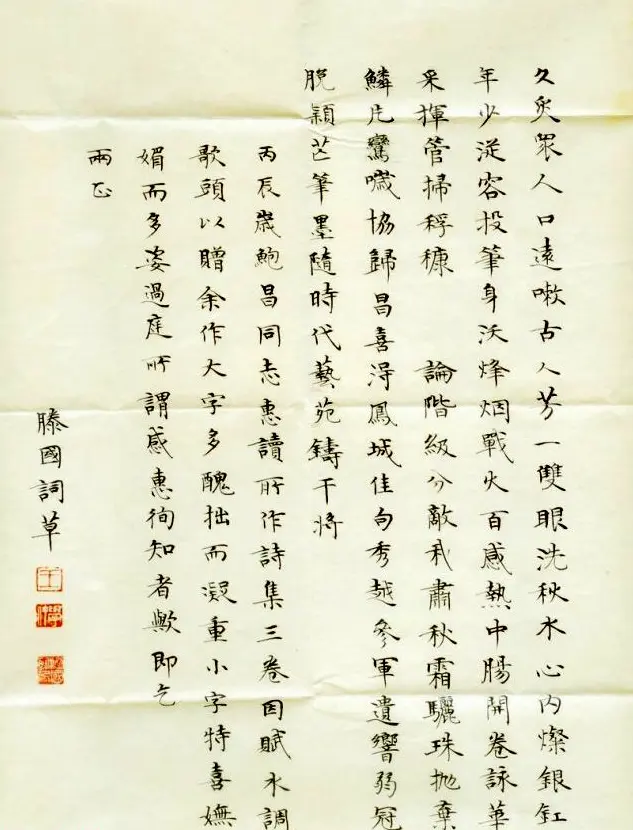 久炙眾人口遠嗽古人芳一雙眼洗秋水心内燦銀釭
年少從容投筆身沃烽烟戰火百感熱中腸開卷詠華
采揮管掃稃穅 論階級分敵我肅秋霜驪珠拋棄
鱗片鸞噦協歸昌喜得鳳城佳句秀越參軍遺響弱冠
脫穎芒筆墨隨時代藝苑鑄干將
丙辰歲鮑昌同志惠讀所作詩集三卷因賦水調
歌頭以贈余作大字多醜拙而凝重小字特喜嫵
媚而多姿過庭所謂感惠徇知者歟即乞
兩正
滕國詞草
王